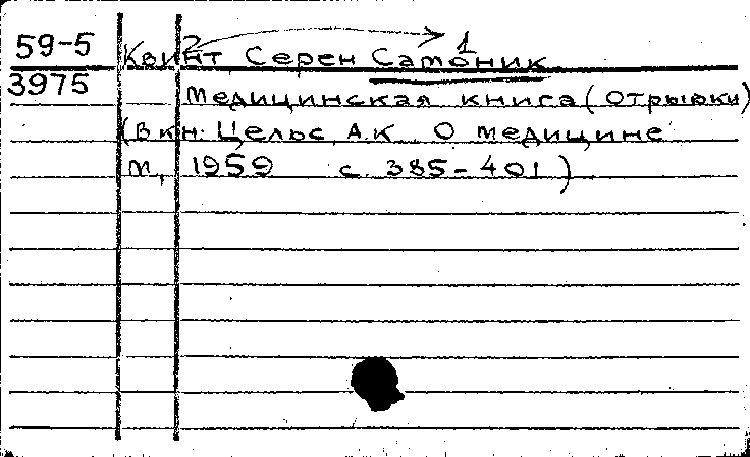 59-5 Квинт Серен Самоник
2 1
3975 Медицинская книга (отрывки)
(В кн: Цельс А.К. О медицине
М, 1959 с. 385-401)